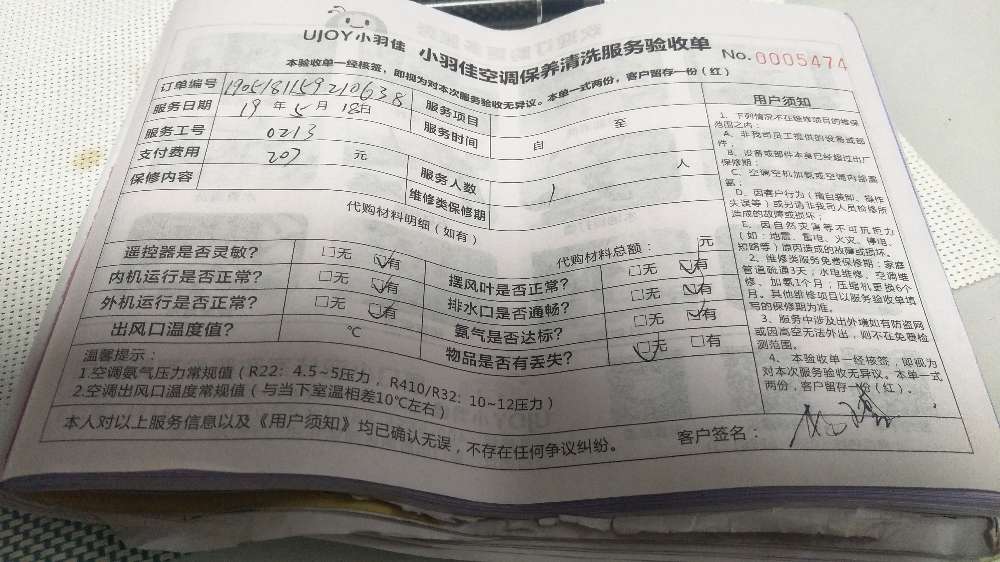 UJOY小羽佳 小羽佳空调保养清洗服务验收单
No.0005474
本验收单一经核签，即视为对本次服务验收无异议。本单一式两份，客户留存一份（红）
订单编号 1905181159210638 服务项目
服务日期 19年5月18日 服务时间 自 至
服务工号 0213
支付费用 207 元 服务人数 1 人
保修内容 维修类保修期
代购材料明细（如有） 代购材料总额： 元
遥控器是否灵敏? □无 ☑有 摆风叶是否正常? □无 ☑有
内机运行是否正常? □无 ☑有 排水口是否通畅? □无 ☑有
外机运行是否正常? □无 ☑有 氨气是否达标? □无 ☑有
出风口温度值? ℃ 物品是否有丢失? ☑无 □有
温馨提示：
1.空调氨气压力常规值（R22: 4.5~5压力，R410/R32: 10~12压力）
2.空调出风口温度常规值（与当下室温相差10℃左右）
本人对以上服务信息以及《用户须知》均已确认无误，不存在任何争议纠纷。 客户签名：
用户须知
1、下列情况不在维修项目的维保
范围之内：
A、非我司员工提供的设备或部
件；
B、设备或部件本身已经超过出厂
保修期；
C、空调空机加氨或空调内部露
D、因客户行为（擅自装卸、操作
失误等）或另请非我司人员检修所
造成的故障或损坏；
E、因自然灾害等不可抗拒力
（如：地震、雷电、火灾、停电、
短路等）原因造成的故障或损坏。
2、维修类服务免费保修期：家庭
管道疏通3天；水电维修、空调维
修、加氨1个月；压缩机更换6个
月。其他维修项目以服务验收单填
写的保修期为准。
3、服务中涉及出外墙如有防盗网
或因高空无法外出，则不在免费检
测范围。
4、本验收单一经核签，即视为
对本次服务验收无异议。本单一式
两份，客户留存一份（红）。